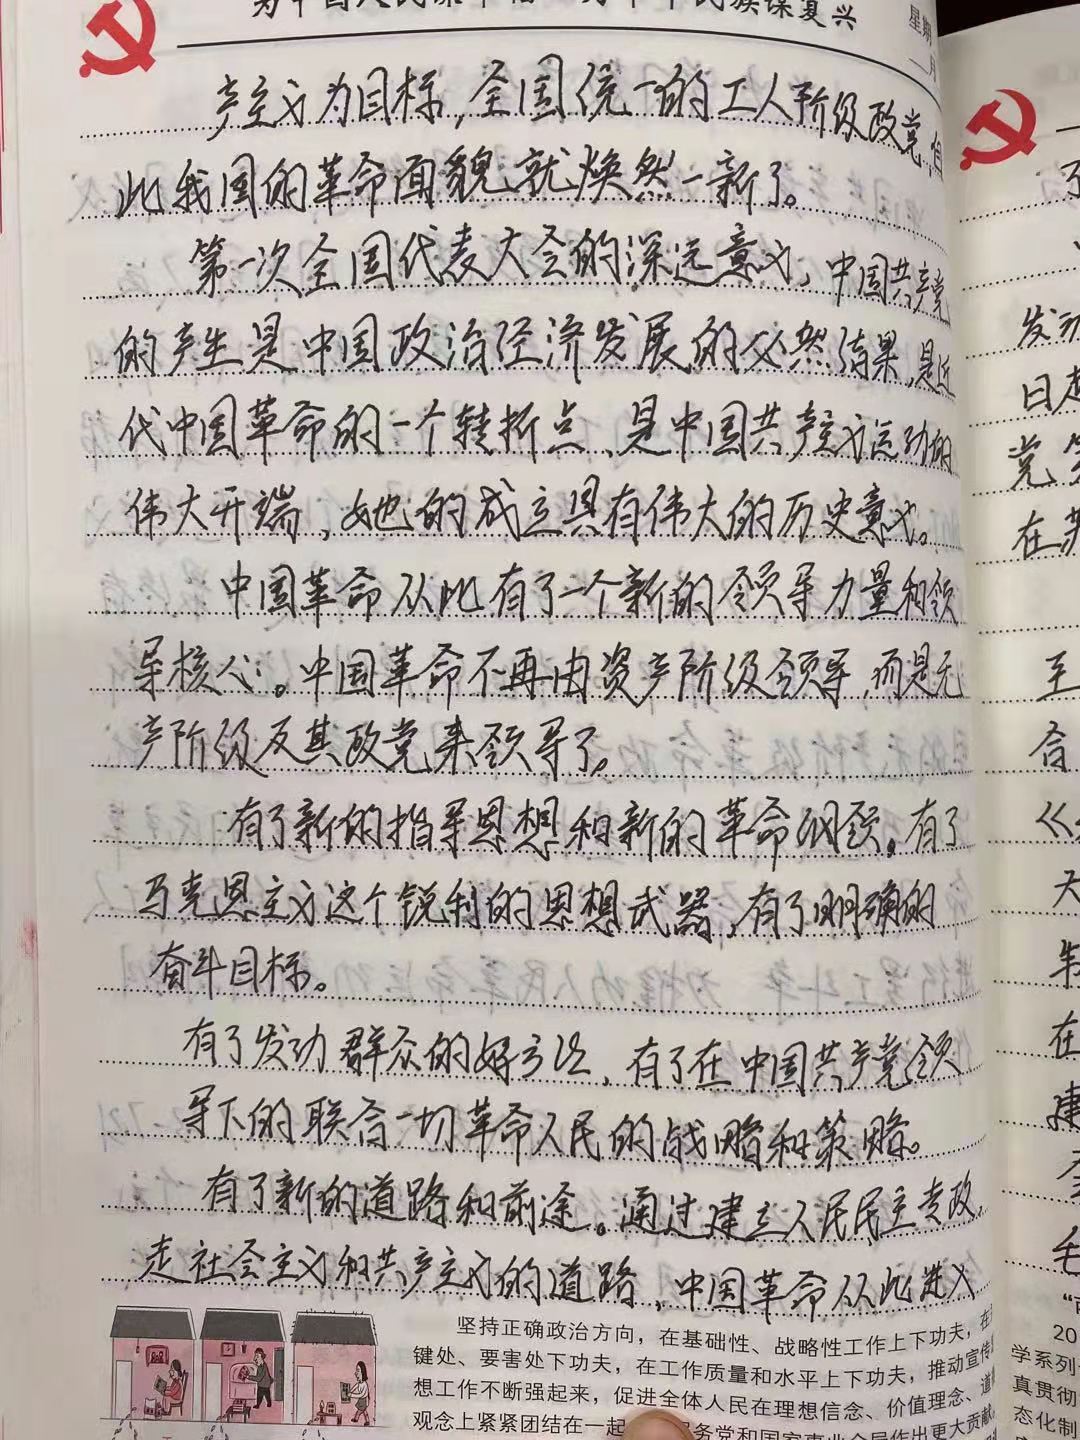 为中国人民谋幸福 为中华民族谋复兴
星期
月
产主义为目标,全国统一的工人阶级政党,自
此我国的革命面貌就焕然一新了。
第一次全国代表大会的深远意义,中国共产党
的产生是中国政治经济发展的必然结果,是近
代中国革命的一个转折点、是中国共产主义运动的
伟大开端,她的成立具有伟大的历史意义。
中国革命从此有了一个新的领导力量和领
导核心。中国革命不再由资产阶级领导,而是无
产阶级及其政党来领导了。
有了新的指导思想和新的革命纲领。有了
马克思主义这个锐利的思想武器,有了明确的
奋斗目标。
有了发动群众的好方法,有了在中国共产党领
导下的联合一切革命人民的战略和策略。
有了新的道路和前途。通过建立人民民主专政,
走社会主义和共产主义的道路,中国革命从此进入
坚持正确政治方向,在基础性、战略性工作上下功夫,在
键处、要害处下功夫,在工作质量和水平上下功夫,推动宣传
想工作不断强起来,促进全体人民在理想信念、价值理念、道
观念上紧紧团结在一起
务党和国家事业全局作出更大贡献。
发动
日起
党
在
至
合
《
大
制
在
建
毛
20
学系列
真贯彻
态化制